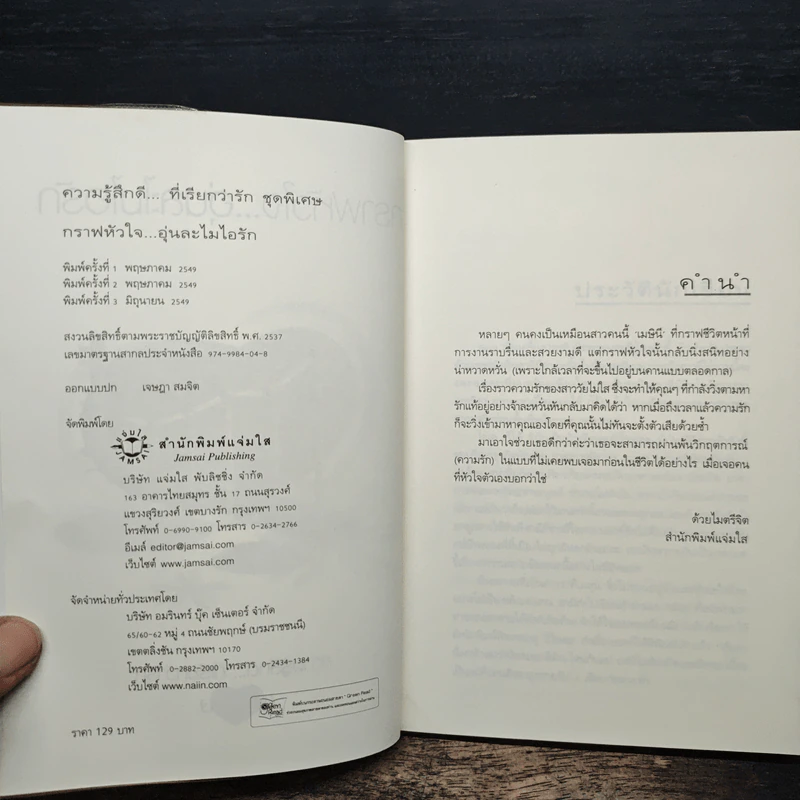 ความรู้สึกดี... ที่เรียกว่ารัก ชุดพิเศษ
กราฟหัวใจ...อุ่นละไมไอรัก
พิมพ์ครั้งที่ 1 พฤษภาคม 2549
พิมพ์ครั้งที่ 2 พฤษภาคม 2549
พิมพ์ครั้งที่ 3 มิถุนายน 2549
สงวนลิขสิทธิ์ตามพระราชบัญญัติลิขสิทธิ์ พ.ศ. 2537
เลขมาตรฐานสากลประจำหนังสือ 974-9984-04-8
ออกแบบปก เจษฎา สมจิต
จัดพิมพ์โดย
สำนักพิมพ์แจ่มใส
Jamsai Publishing
บริษัท แจ่มใส พับลิชชิ่ง จำกัด
163 อาคารไทยสมุทร ชั้น 17 ถนนสุรวงศ์
แขวงสุริยวงศ์ เขตบางรัก กรุงเทพฯ 10500
โทรศัพท์ 0-6990-9100 โทรสาร 0-2634-2766
อีเมล์ editor@jamsai.com
เว็บไซต์ www.jamsai.com
จัดจำหน่ายทั่วประเทศโดย
บริษัท อมรินทร์ บุ๊ค เซ็นเตอร์ จำกัด
65/60-62 หมู่ 4 ถนนชัยพฤกษ์ (บรมราชชนนี)
เขตตลิ่งชัน กรุงเทพฯ 10170
โทรศัพท์ 0-2882-2000 โทรสาร 0-2434-1384
เว็บไซต์ www.naiin.com
ราคา 129 บาท
คำนำ
หลายๆ คนคงเป็นเหมือนสาวคนนี้ 'เมษินี' ที่กราฟชีวิตหน้าที่
การงานราบรื่นและสวยงามดี แต่กราฟหัวใจนั้นกลับนิ่งสนิทอย่าง
น่าหวาดหวั่น (เพราะใกล้เวลาที่จะขึ้นไปอยู่บนคานแบบตลอดกาล)
เรื่องราวความรักของสาววัยไม่ใส ซึ่งจะทำให้คุณๆ ที่กำลังวิ่งตามหา
รักแท้อยู่อย่างจ้าละหวั่นหันกลับมาคิดได้ว่า หากเมื่อถึงเวลาแล้วความรัก
ก็จะวิ่งเข้ามาหาคุณเองโดยที่คุณนั้นไม่ทันจะตั้งตัวเสียด้วยซ้ำ
มาเอาใจช่วยเธอดีกว่าค่ะว่าเธอจะสามารถผ่านพ้นวิกฤตการณ์
(ความรัก) ในแบบที่ไม่เคยพบเจอมาก่อนในชีวิตได้อย่างไร เมื่อเจอคน
ที่หัวใจตัวเองบอกว่าใช่
ด้วยไมตรีจิต
สำนักพิมพ์แจ่มใส